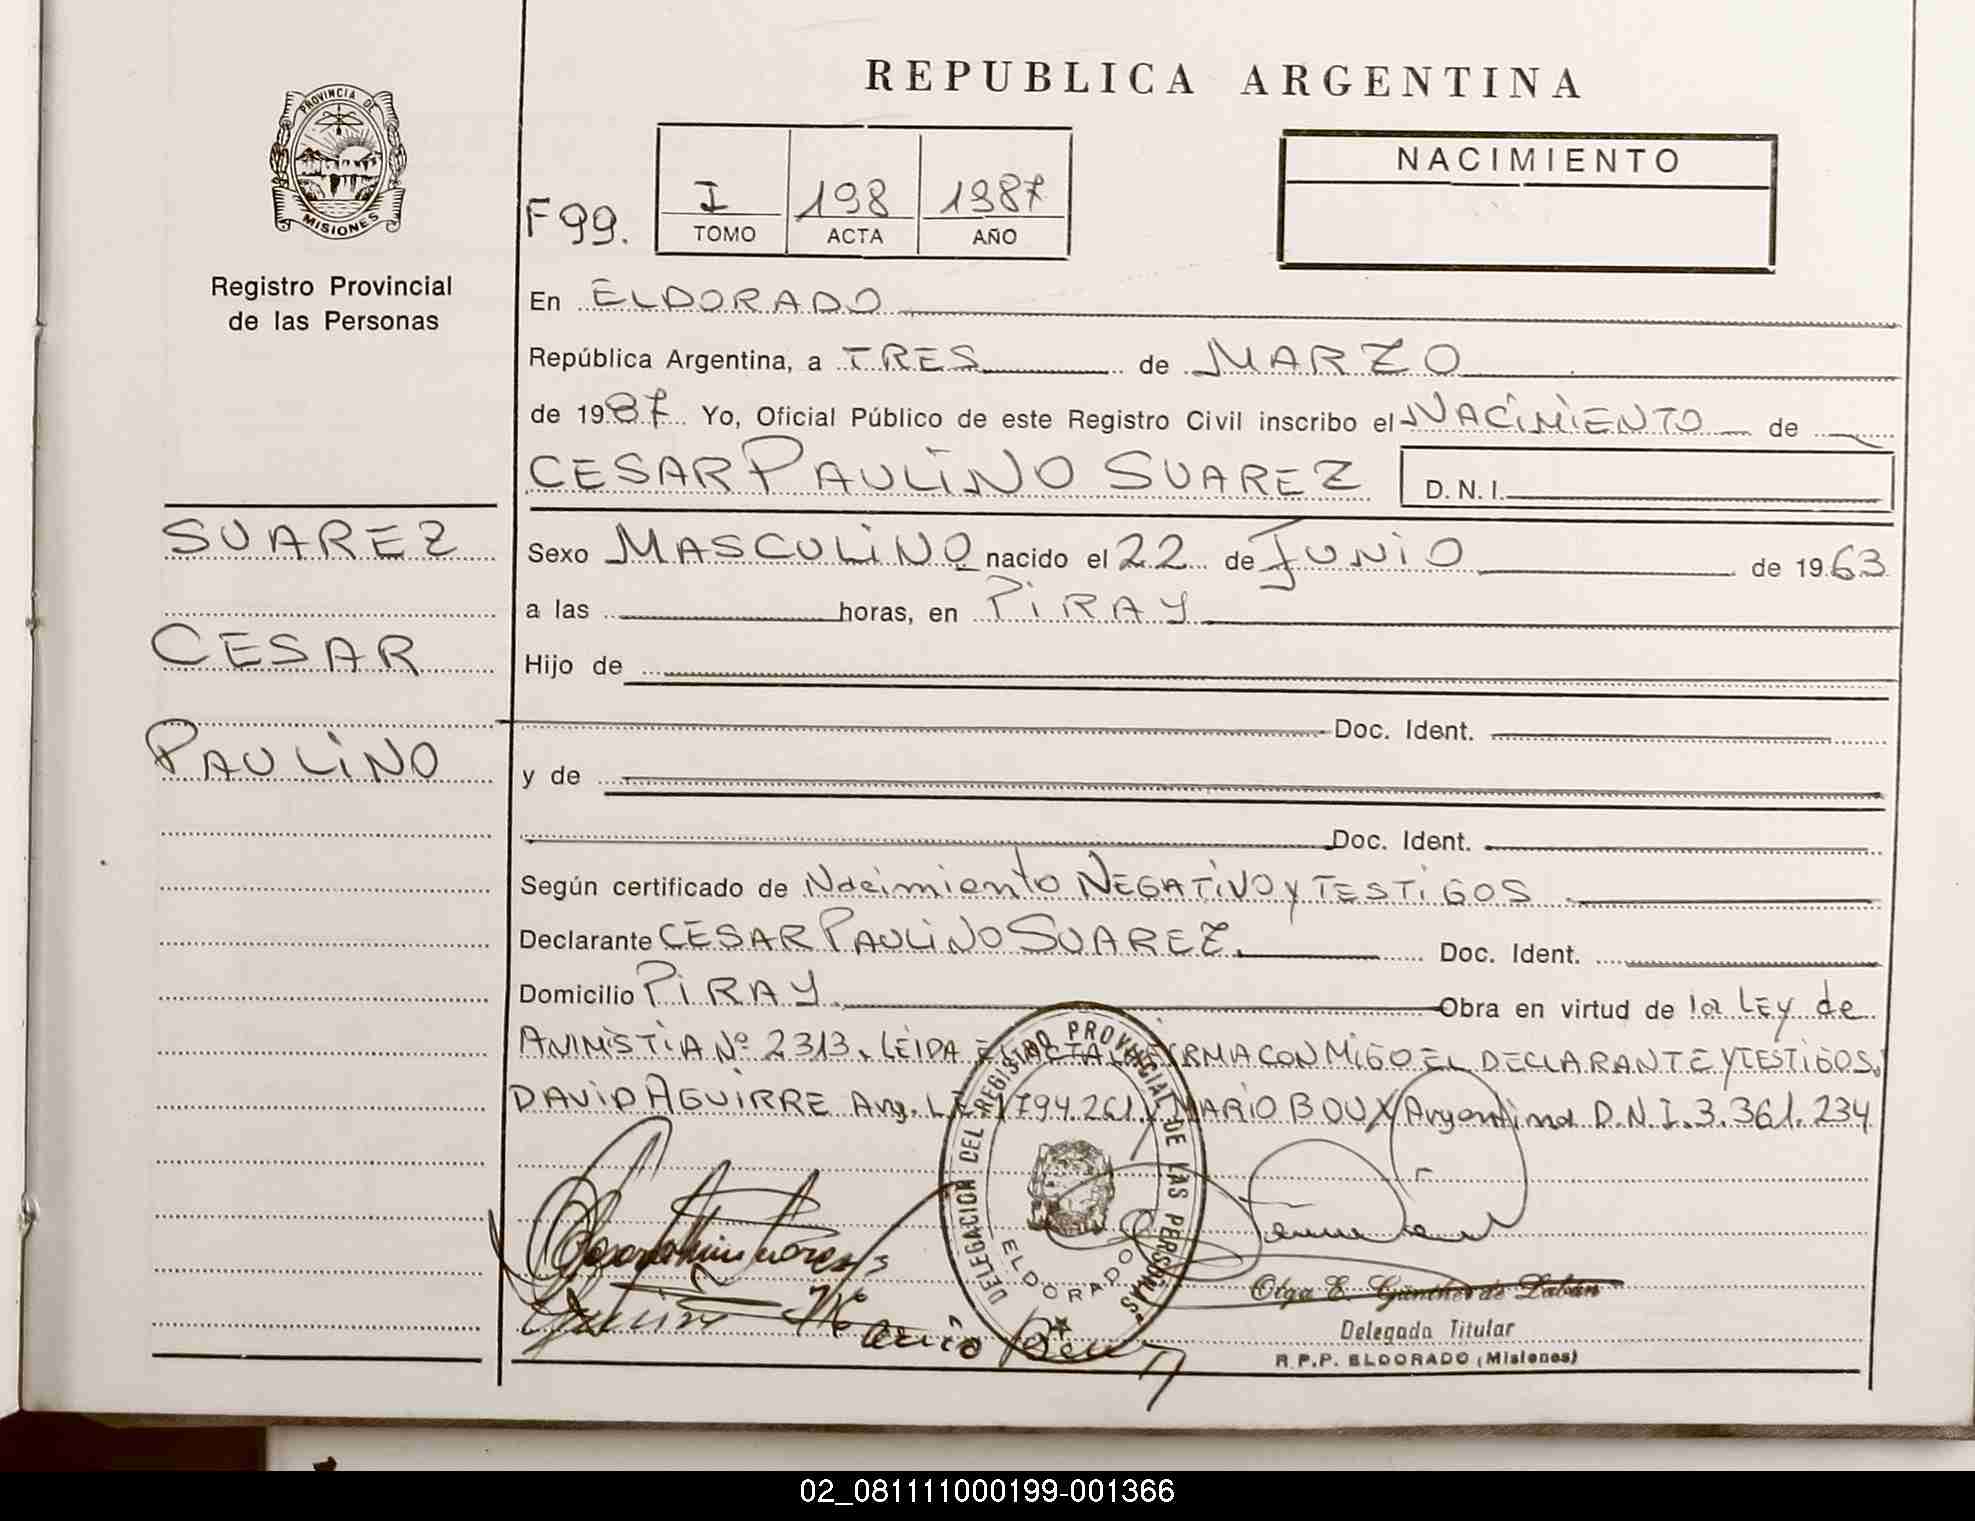 REPUBLICA ARGENTINA
PROVINCIA DE
MISIONES
Registro Provincial
de las Personas
F 99.
I 198 1987
TOMO ACTA AÑO
NACIMIENTO
En ELDORADO
República Argentina, a TRES de MARZO
de 1987 Yo, Oficial Público de este Registro Civil inscribo el NACIMIENTO de
CESAR PAULINO SUAREZ D.N.I.
SUAREZ
CESAR
PAULINO
Sexo MASCULINO nacido el 22 de JUNIO de 1963
a las horas, en PIRAY
Hijo de
Doc. Ident.
y de
Doc. Ident.
Según certificado de Nacimiento NEGATIVO y TESTIGOS
Declarante CESAR PAULINO SUAREZ. Doc. Ident.
Domicilio PIRAY. Obra en virtud de la LEY de
ANIMISTIA Nº 2313. LEIDA EL ACTA LA FIRMA CONMIGO EL DECLARANTE Y TESTIGOS.
DAVID AGUIRRE Arg. L.E. 1794.261 y MARIO BOUX Argentina D.N.I. 3.361.234
DELEGACION DEL REGISTRO PROVINCIAL DE LAS PERSONAS
ELDORADO
Mario
Olga E. Günther de Laban
Delegada Titular
R.P.P. ELDORADO (Misiones)
02_081111000199-001366